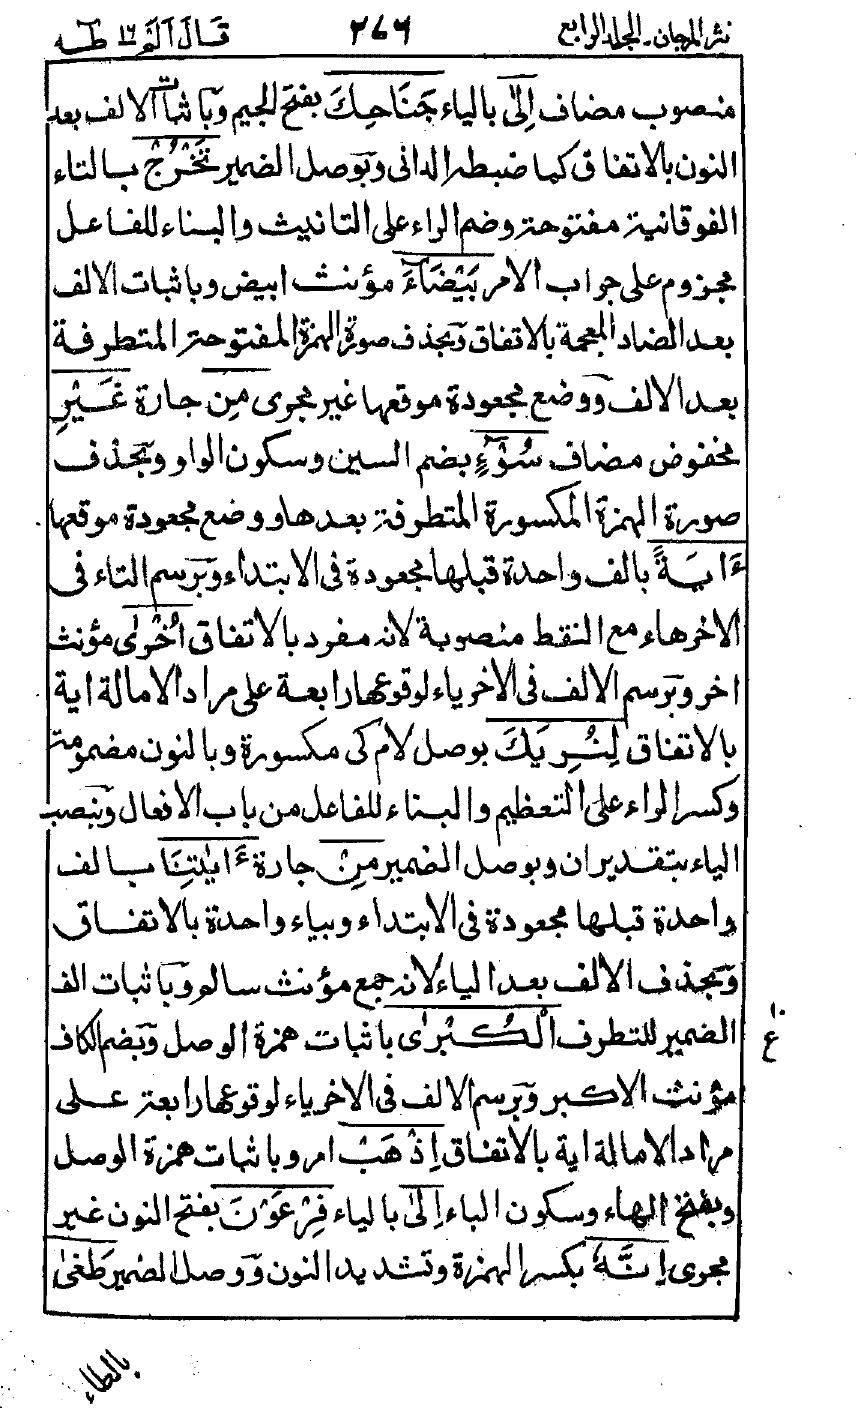 نثر المرجان ـ المجلد الرابع ٢٧٦ قَالَ اَلَمْ ١٦ طٰہٰ
منصوب مضاف اِلىٰ بالياء جَنَاحِكَ بفتح الجيم وباثبات الالف بعد
النون بالاتفاق كما ضبطه الدانى وبوصل الضمير تَخْرُجْ بالتاء
الفوقانية مفتوحة وضم الراء على التانيث والبناء للفاعل
مجزوم على جواب الامر بَيْضَآءَ مؤنث ابيض وباثبات الالف
بعد الضاد المعجمة بالاتفاق وبحذف صورة الهمزة المفتوحة المتطرفة
بعد الالف ووضع مجعودة موقعها غير مجرى مِن جارة غَيْرِ
مخفوض مضاف سُوْٓءٍ بضم السين وسكون الواو وبحذف
صورة الهمزة المكسورة المتطرفة بعدها ووضع مجعودة موقعها
ءَايَةً بالف واحدة قبلها مجعودة فى الابتداء وبرسم التاء فى
الاخرهاء مع النقط منصوبة لانه مفرد بالاتفاق اُخْرٰى مؤنث
اخر وبرسم الالف فى الاخر ياء لوقوعها رابعة على مراد الامالة اية
بالاتفاق لِنُرِيَكَ بوصل لام كى مكسورة وبالنون مضمومة
وكسر الراء على التعظيم والبناء للفاعل من باب الافعال وبنصب
الياء بتقدير ان وبوصل الضمير مِنْ جارة ءَايٰتِنَا بالف
واحدة قبلها مجعودة فى الابتداء وبياء واحدة بالاتفاق
وبحذف الالف بعد الياء لانه جمع مؤنث سالم وباثبات الف
الضمير للتطرف الْكُبْرٰى باثبات همزة الوصل وبضم الكاف
مؤنث الاكبر وبرسم الالف فى الاخر ياء لوقوعها رابعة على
مراد الامالة اية بالاتفاق اِذْهَبْ امر وباثبات همزة الوصل
وبفتح الهاء وسكون الباء اِلىٰ بالياء فِرْعَوْنَ بفتح النون غير
مجرى اِنَّهٗ بكسر الهمزة وتشديد النون ووصل الضمير طَغٰى
بالطاء
١٠
ع